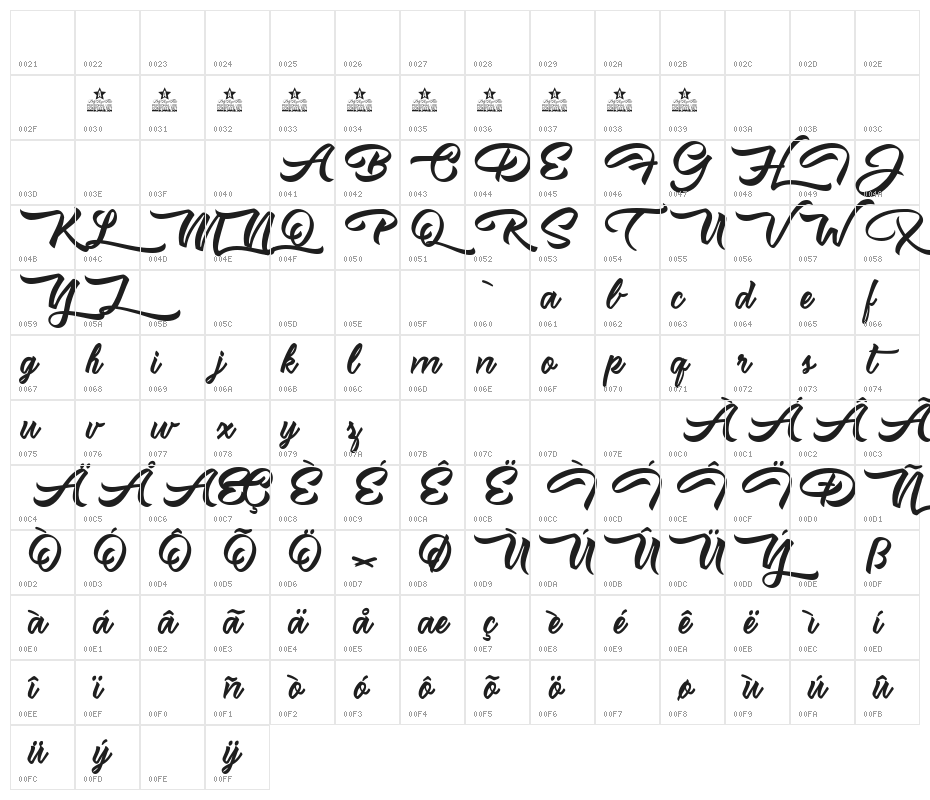 0021 0022 0023 0024 0025 0026 0027 0028 0029 002A 002B 002C 002D 002E
002F 0030 0031 0032 0033 0034 0035 0036 0037 0038 0039 003A 003B 003C
A B C D E F G H I J
003D 003E 003F 0040 0041 0042 0043 0044 0045 0046 0047 0048 0049 004A
K L M N O P Q R S T U V W X
004B 004C 004D 004E 004F 0050 0051 0052 0053 0054 0055 0056 0057 0058
Y Z ` a b c d e f
0059 005A 005B 005C 005D 005E 005F 0060 0061 0062 0063 0064 0065 0066
g h i j k l m n o p q r s t
0067 0068 0069 006A 006B 006C 006D 006E 006F 0070 0071 0072 0073 0074
u v w x y z À Á Â Ã
0075 0076 0077 0078 0079 007A 007B 007C 007D 007E 00C0 00C1 00C2 00C3
Ä Å Æ Ç È É Ê Ë Ì Í Î Ï Ð Ñ
00C4 00C5 00C6 00C7 00C8 00C9 00CA 00CB 00CC 00CD 00CE 00CF 00D0 00D1
Ò Ó Ô Õ Ö × Ø Ù Ú Û Ü Ý ß
00D2 00D3 00D4 00D5 00D6 00D7 00D8 00D9 00DA 00DB 00DC 00DD 00DE 00DF
à á â ã ä å æ ç è é ê ë ì í
00E0 00E1 00E2 00E3 00E4 00E5 00E6 00E7 00E8 00E9 00EA 00EB 00EC 00ED
î ï ñ ò ó ô õ ö ø ù ú û
00EE 00EF 00F0 00F1 00F2 00F3 00F4 00F5 00F6 00F7 00F8 00F9 00FA 00FB
ü ý ÿ
00FC 00FD 00FE 00FF